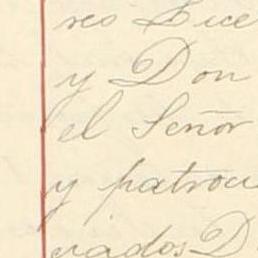 res Lice
y Don
el Señor
y patroci
rados D